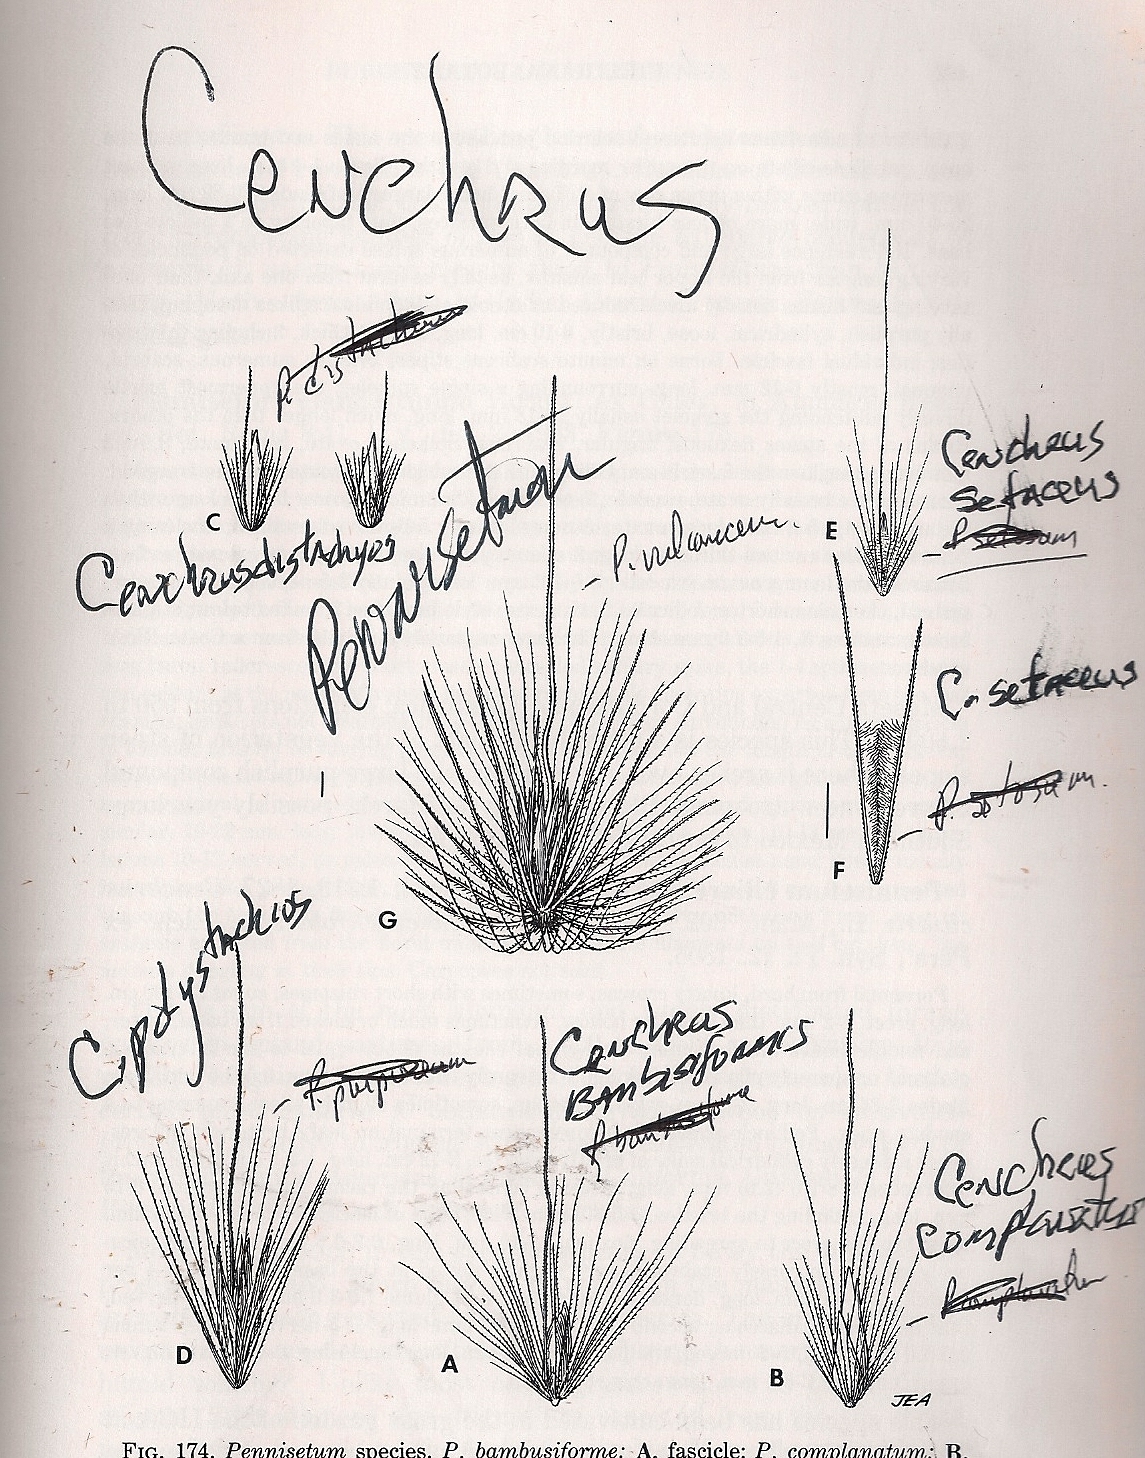 Cenchrus
P. distachium
C
Cenchrus distachyos
Pennisetum
P. vulcanicum.
E
Cenchrus
setaceus
P. setosum
C. setaceus
P. setosum.
F
G
C. polystachios
P. purpureum
Cenchrus
Bambusiformis
P. bambusiforme
Cenchrus
complanatus
P. complanatum
D
A
B
JEA
FIG. 174. Pennisetum species. P. bambusiforme: A, fascicle; P. complanatum: B,